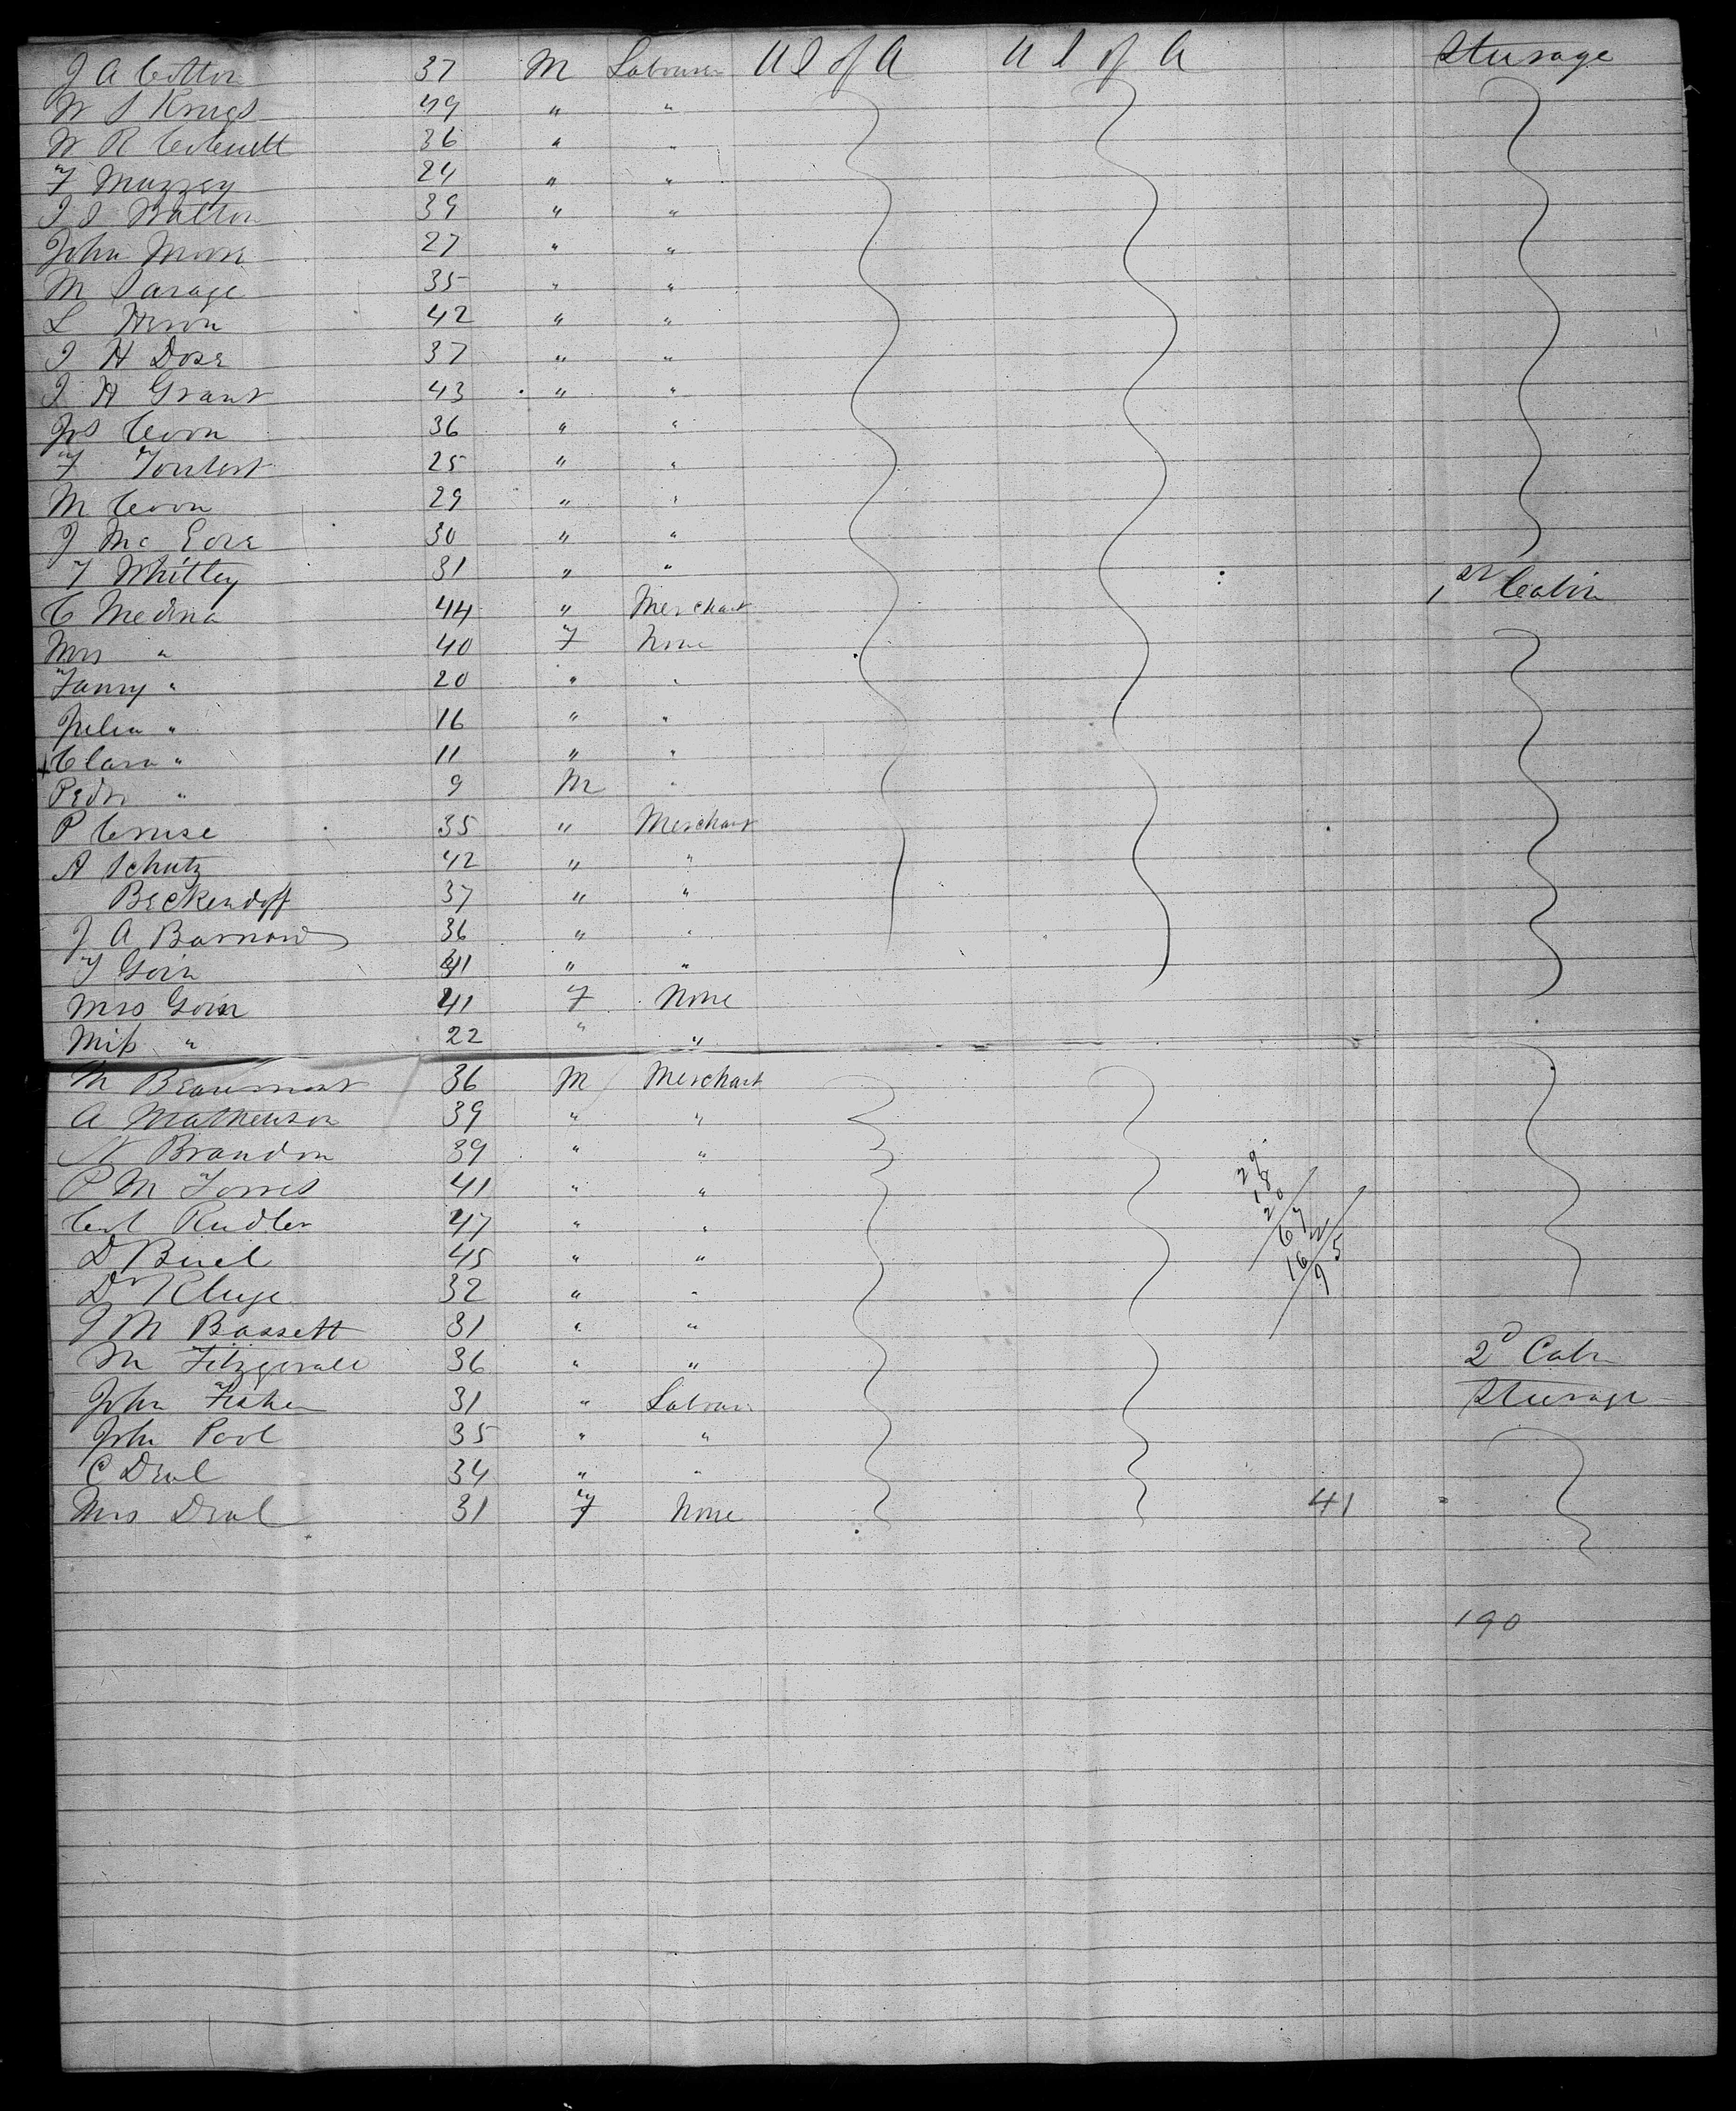 J A Cotton 37 M Labourer U S of A U S of A Sturage
W S Krugs 49 " "
W R 36 " "
F Muzzey 24 " "
J S Balton 39 " "
John Morse 27 " "
M Savage 35 " "
L Heron 42 " "
J H Dose 37 " "
J H Grant 43 " "
Jos Coon 36 " "
F 25 " "
M Coon 29 " "
J Mc 30 " "
T Whitley 31 " "
C Medina 44 " Merchant 1st Cabin
Mrs " 40 F None
Fanny " 20 " "
Julia " 16 " "
Clara " 11 " "
Pedro " 9 M "
P Cruse 35 " Merchant
A Schutz 42 " "
Beckendoff 37 " "
J A Barnard 36 " "
F Goin 41 " "
Mrs Goin 41 F None
Miss " 22 " "
M Beaumont 36 M Merchant
A Mathewson 39 " "
N Brandon 39 " "
P M Torres 41 " "
Col Rudler 47 " "
D Buel 45 " "
Dr Kluge 32 " "
J M Bassett 31 " "
M Fitzgerald 36 " " 2d Cabn
John Fisher 31 " Labour Sturage
John Pool 35 " "
C Deal 34 " "
Mrs Deal 31 F None 41
190